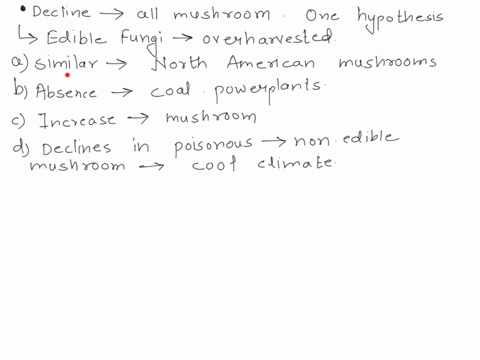 • Decline → all mushroom. One hypothesis
↳ Edible Fungi → overharvested.
a) Similar → North American mushrooms
b) Absence → coal powerplants.
c) Increase → mushroom
d) Declines in poisonous → non edible
mushroom → cool climate.